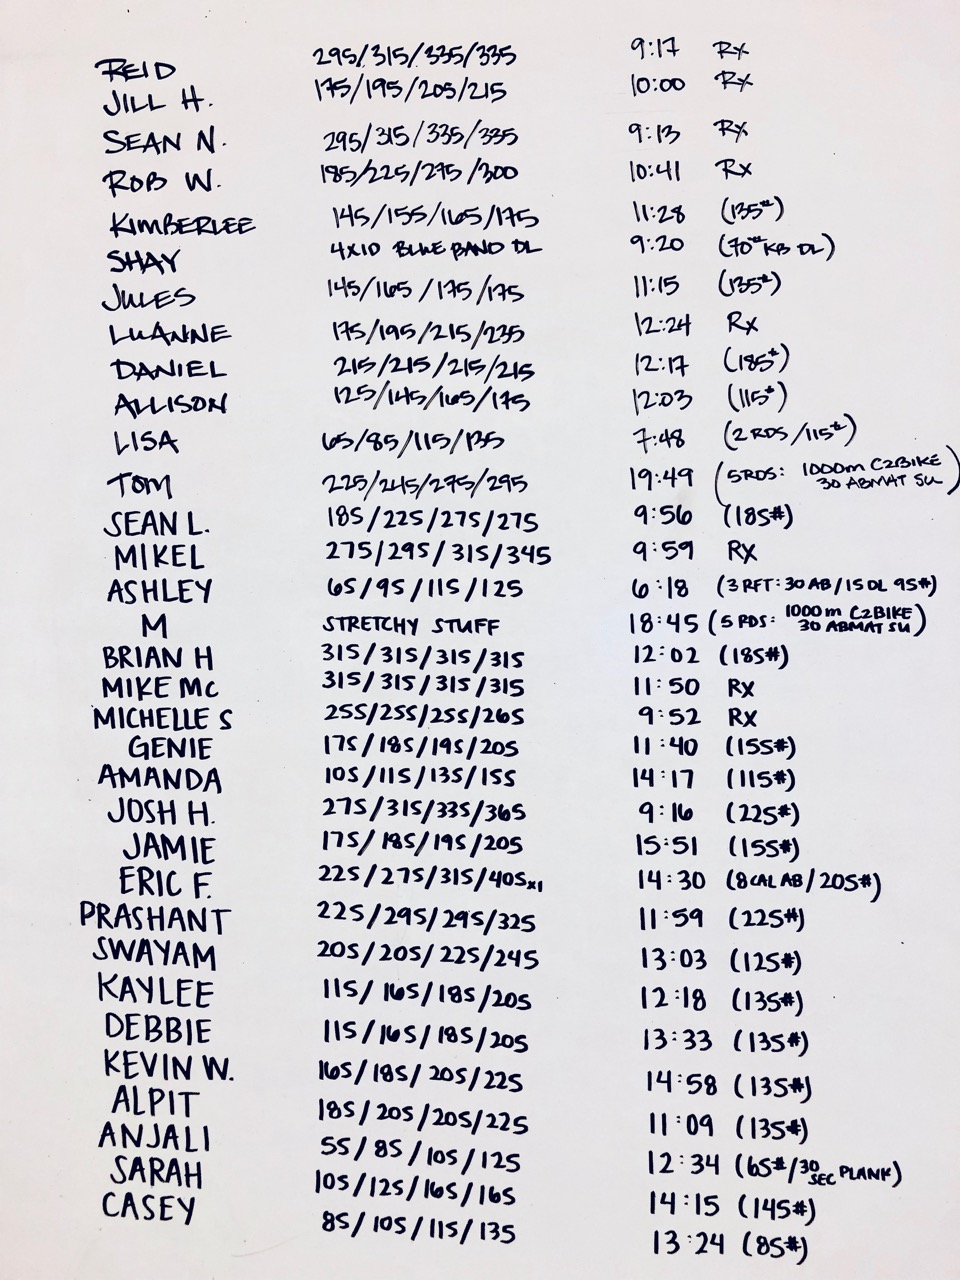 REID 295/315/335/335 9:17 Rx
JILL H. 175/195/205/215 10:00 Rx
SEAN N. 295/315/335/335 9:13 Rx
ROB W. 185/225/275/300 10:41 Rx
KIMBERLEE 145/155/165/175 11:28 (135#)
SHAY 4X10 BLUE BAND DL 9:20 (70# KB DL)
JULES 145/165/175/175 11:15 (135#)
LUANNE 175/195/215/235 12:24 Rx
DANIEL 215/215/215/215 12:17 (185#)
ALLISON 125/145/165/175 12:03 (115#)
LISA 65/85/115/135 7:48 (2 RDS/115#)
TOM 225/245/275/295 19:49 (5RDS: 1000m C2BIKE
30 ABMAT SU)
SEAN L. 185/225/275/275 9:56 (185#)
MIKEL 275/295/315/345 9:59 RX
ASHLEY 65/95/115/125 6:18 (3 RFT: 30 AB/15 DL 95#)
M STRETCHY STUFF 18:45 (5 RDS: 1000m C2BIKE
30 ABMAT SU)
BRIAN H 315/315/315/315 12:02 (185#)
MIKE MC 315/315/315/315 11:50 RX
MICHELLE S 255/255/255/265 9:52 RX
GENIE 175/185/195/205 11:40 (155#)
AMANDA 105/115/135/155 14:17 (115#)
JOSH H. 275/315/335/365 9:16 (225#)
JAMIE 175/185/195/205 15:51 (155#)
ERIC F. 225/275/315/405x1 14:30 (8 CAL AB/205#)
PRASHANT 225/295/295/325 11:59 (225#)
SWAYAM 205/205/225/245 13:03 (125#)
KAYLEE 115/165/185/205 12:18 (135#)
DEBBIE 115/165/185/205 13:33 (135#)
KEVIN W. 165/185/205/225 14:58 (135#)
ALPIT 185/205/205/225 11:09 (135#)
ANJALI 55/85/105/125 12:34 (65#/30 SEC PLANK)
SARAH 105/125/165/165 14:15 (145#)
CASEY 85/105/115/135 13:24 (85#)